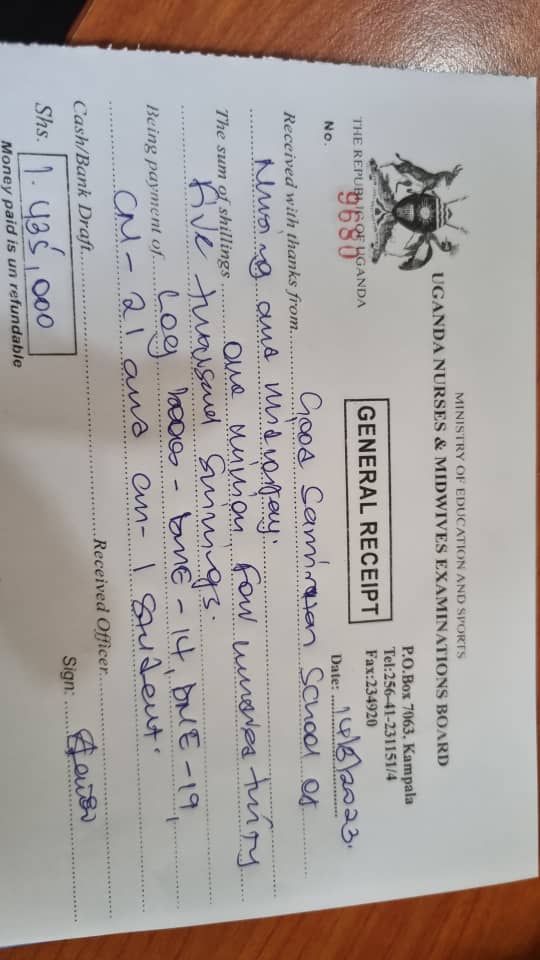 MINISTRY OF EDUCATION AND SPORTS
UGANDA NURSES & MIDWIVES EXAMINATIONS BOARD
P.O.Box 7063, Kampala
Tel:256-41-231151/4
Fax:234920
GENERAL RECEIPT
THE REPUBLIC OF UGANDA
No. 9680
Date: 14/8/2023.
Received with thanks from Good Samiratan School of
Nursing and Midwifery.
The sum of shillings one million four hundred thirty
five thousand Shillings.
Being payment of Log books - DME - 14, DNE - 19,
CN - 21 and CM - 1 Student.
Cash/Bank Draft
Received Officer
Sign:
Shs. 1.435,000
Money paid is un refundable